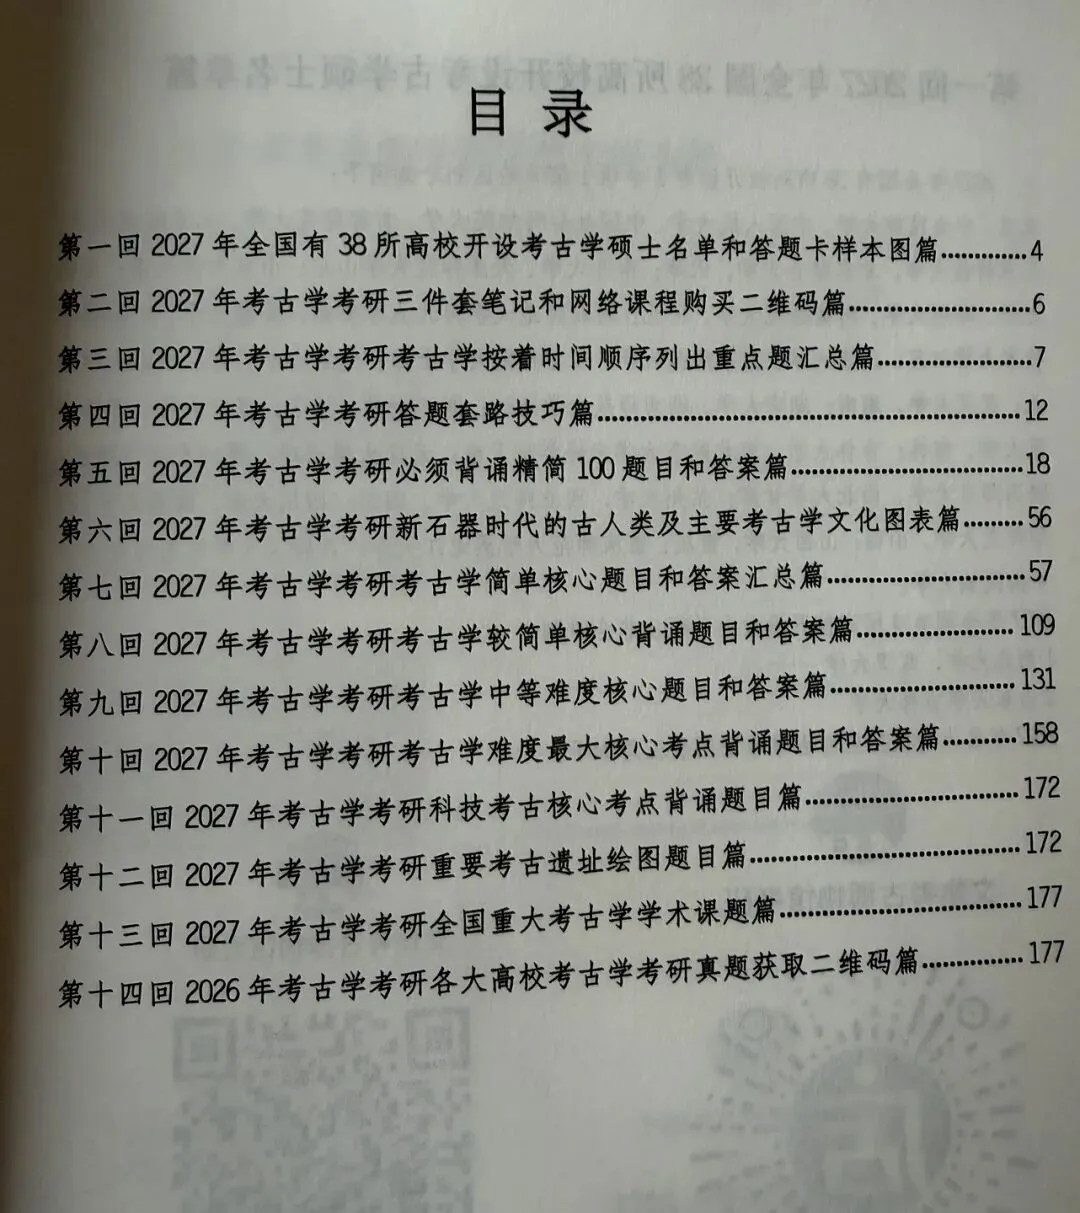 目 录
第一回 2027 年全国有 38 所高校开设考古学硕士名单和答题卡样本图篇.............4
第二回 2027 年考古学考研三件套笔记和网络课程购买二维码篇............................6
第三回 2027 年考古学考研考古学按着时间顺序列出重点题汇总篇........................7
第四回 2027 年考古学考研答题套路技巧篇................................................................12
第五回 2027 年考古学考研必须背诵精简 100 题目和答案篇...................................18
第六回 2027 年考古学考研新石器时代的古人类及主要考古学文化图表篇.........56
第七回 2027 年考古学考研考古学简单核心题目和答案汇总篇..............................57
第八回 2027 年考古学考研考古学较简单核心背诵题目和答案篇........................109
第九回 2027 年考古学考研考古学中等难度核心题目和答案篇............................131
第十回 2027 年考古学考研考古学难度最大核心考点背诵题目和答案篇...........158
第十一回 2027 年考古学考研科技考古核心考点背诵题目篇................................172
第十二回 2027 年考古学考研重要考古遗址绘图题目篇........................................172
第十三回 2027 年考古学考研全国重大考古学学术课题篇....................................177
第十四回 2026 年考古学考研各大高校考古学考研真题获取二维码篇...............177